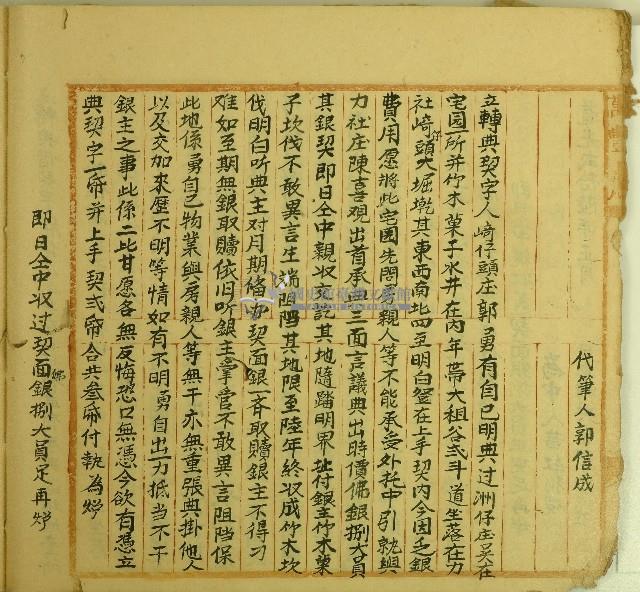 代筆人郭信成
立轉典契字人崎仔頭庄郭勇有自己明典過洲仔庄吳在
宅园一所并竹木菓子水井在內年帶大租谷弍斗道坐落在力
社崎仔頭大堀墘其東西南北四至明白登在上手契內今因乏銀
費用愿將此宅园先問親人等不能承受外托中引就與
力社庄陳喜观出首承典三面言議典出時價佛銀捌大員
其銀契即日仝中親收訖其地隨踏明界址付銀主竹木菓
子坎伐不敢異言生端阻擋其地限至陸年終收成竹木坎
伐明白听典主对月期俻足契面銀一斉取贖銀主不得刁
难如至期無銀取贖依旧听銀主掌管不敢異言阻擋保
此地係勇自己物業與房親人等無干亦無重張典掛他人
以及交加來歷不明等情如有不明勇自出一力抵当不干
銀主之事此係二比甘愿各無反悔恐口無憑今欲有憑立
典契字一帋并上手契弍帋合共叁帋付執為炤
即日仝中收过契面佛銀捌大員足再炤